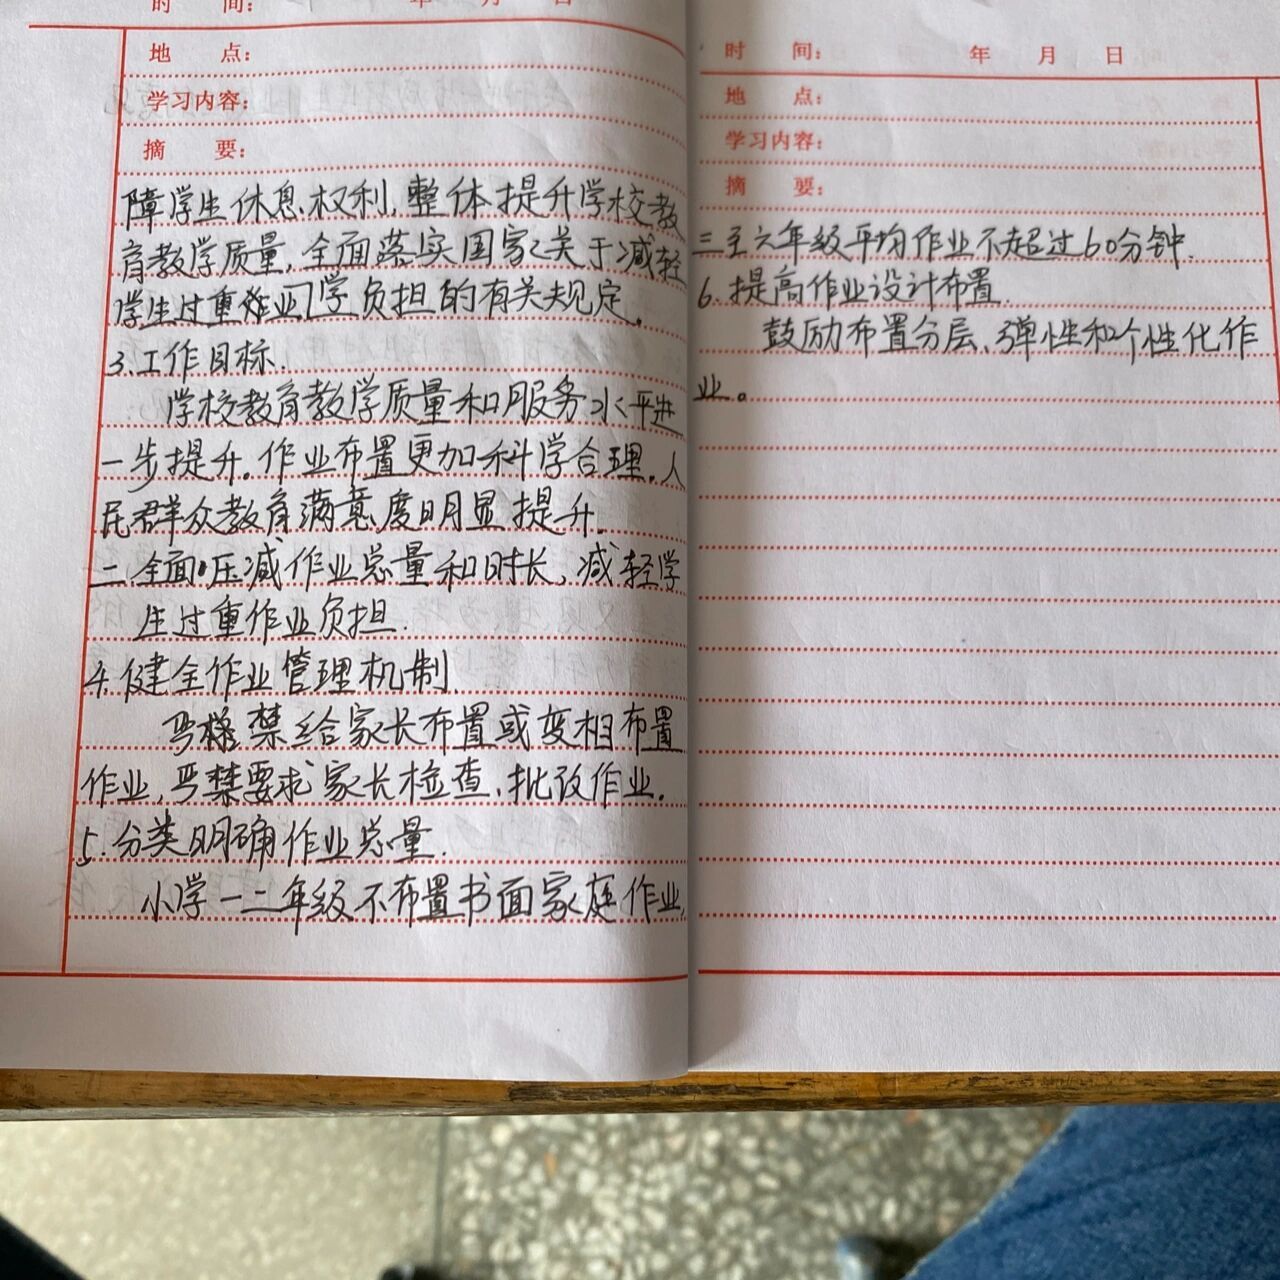 时 间: 年 月 日
地 点:
学习内容:
摘 要:
障学生休息权利,整体提升学校教
育教学质量,全面落实国家关于减轻
学生过重作业门学负担的有关规定。
3.工作目标.
学校教育教学质量和服务水平进
一步提升。作业布置更加科学合理。人
民群众教育满意度明显提升.
二.全面压减作业总量和时长、减轻学
生过重作业负担.
4.健全作业管理机制.
严格禁给家长布置或变相布置
作业,严禁要求家长检查、批改作业。
5.分类明确作业总量.
小学一二年级不布置书面家庭作业,
时 间: 年 月 日
地 点:
学习内容:
摘 要:
三至六年级平均作业不超过60分钟.
6.提高作业设计布置.
鼓励布置分层、弹性和个性化作
业。